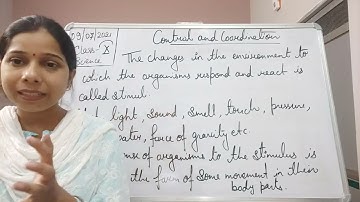 09/07/2021
Class- X
Science
Control and Coordination
The changes in the environment to
which the organisms respond and react is
called stimuli.
light, sound, smell, touch, pressure,
water, force of gravity etc.
of organisms to the stimulus is
the form of some movement in their
body parts.